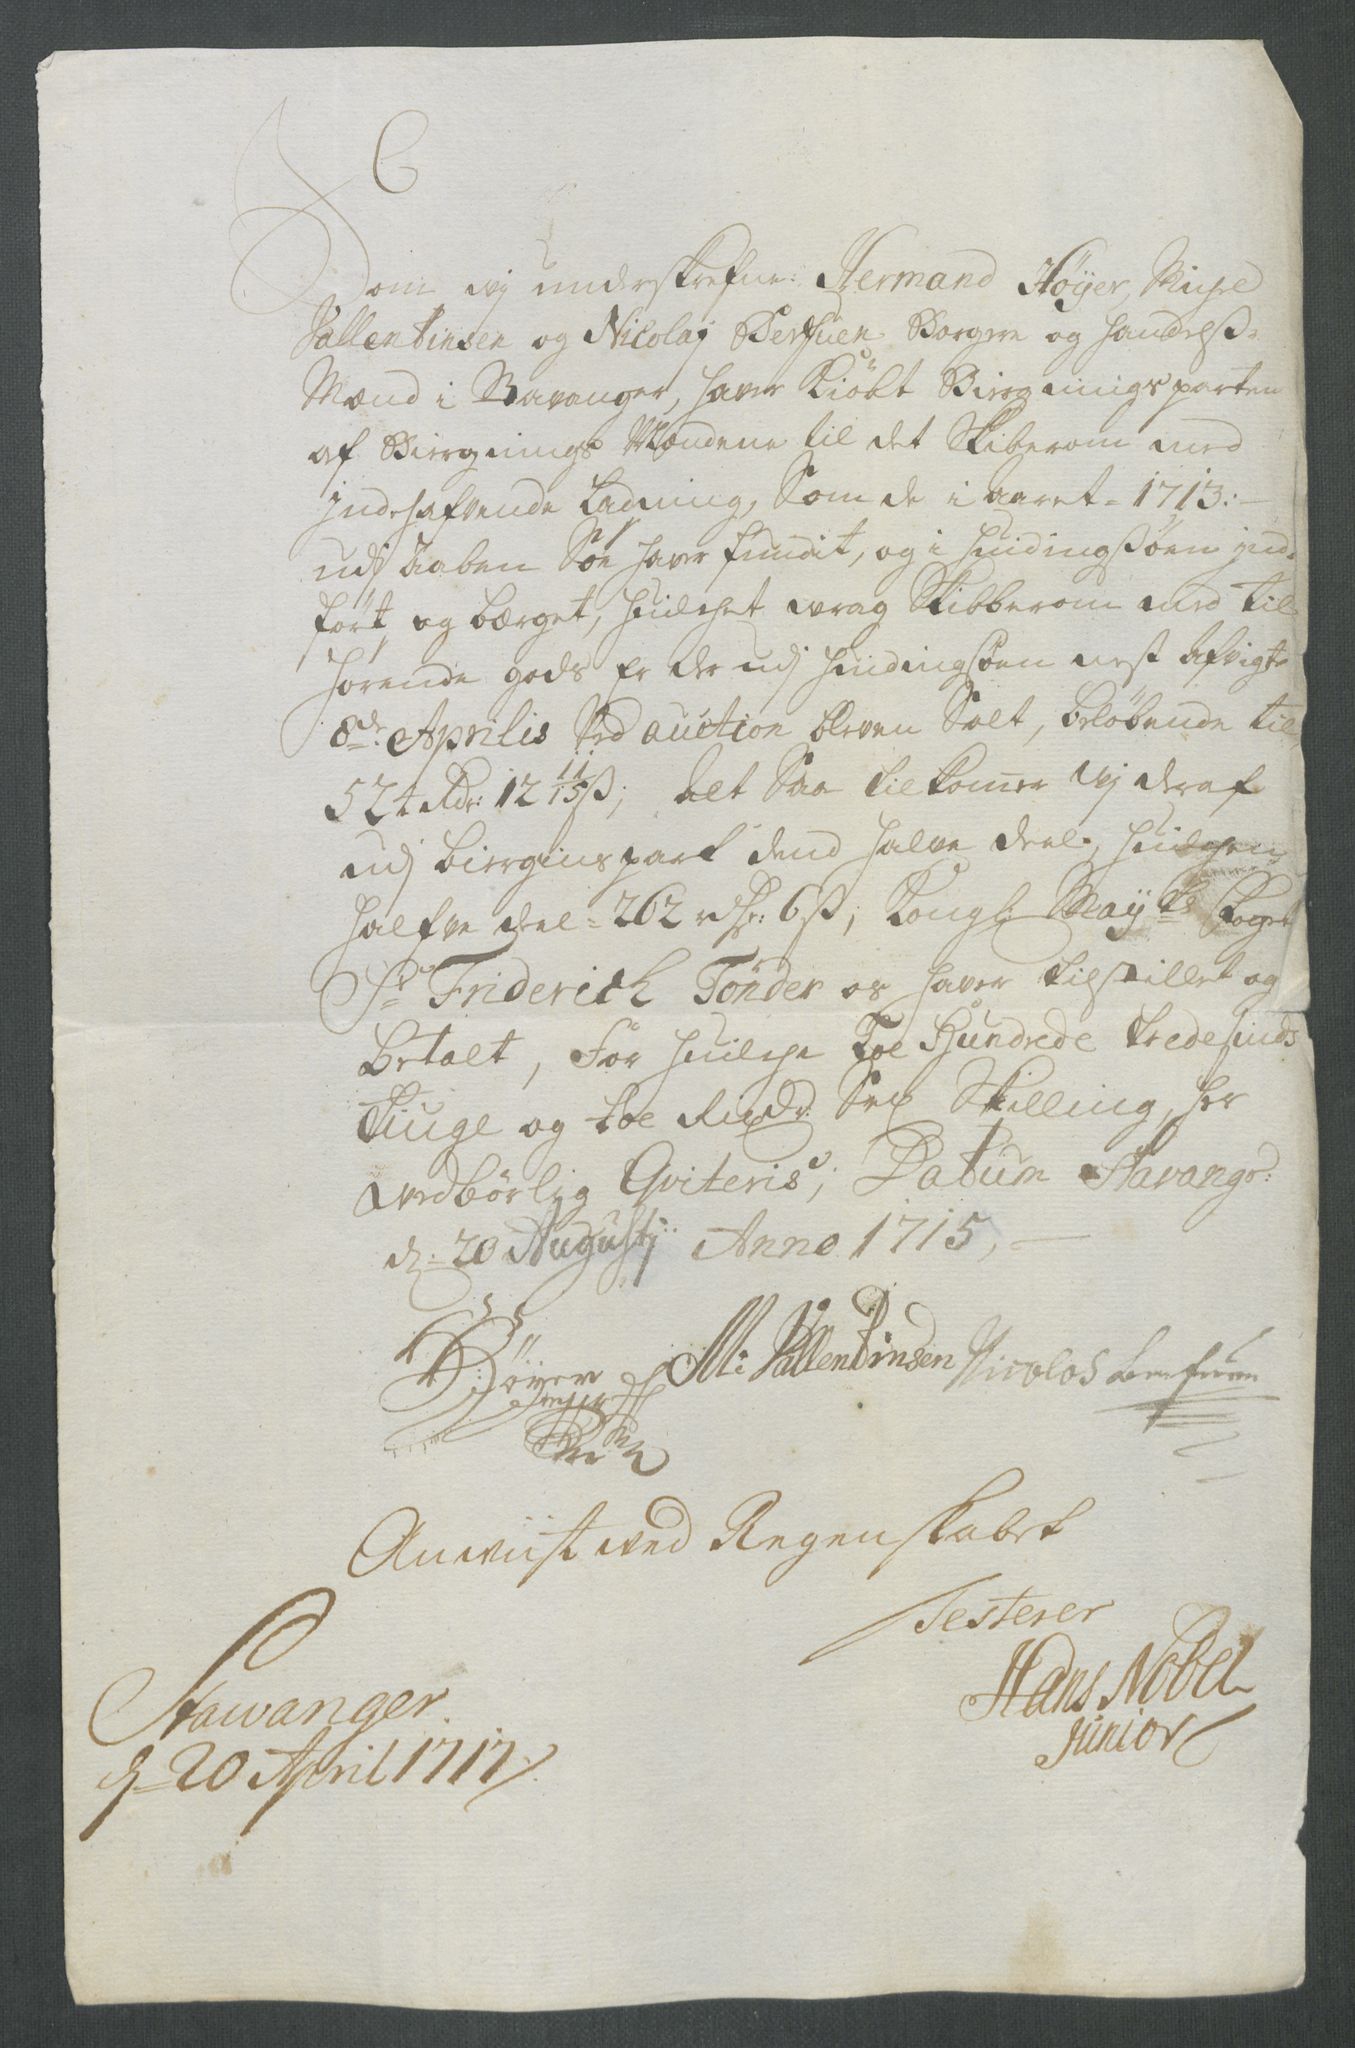 C
Som wj underskrefne: Hermand Höÿer, Michel
Vallentinsen og Nicolaj Berfuen Borgere og Handelsz-
Mænd i Stavanger, hafer Kiöbt Biergningsparten
af Biergnings Mændene til det Skiberom med
Jndehafvende Ladning, Som de i aaret = 1713:
udj Aaben Söe hafer fundit, og i Huidingszöen ind-
fört og bærget, huilchet wrag Skibberom med til-
hörende gods er der udj Huidingsöen nest afvigte
8de: Aprilis Ved auction bleven Solt, belöbende til
524 Rdr: 12 11/15 ß; alt Saa tilkomer Wj deraf
udj biergins part dend halve deel, huilchen
halfve deel = 262 rdr: 6 ß; Kongl: Maÿts foget
Sr Friderich Tönder os hafer tilstillet og
betalt, For huilche Toe Hundrede tredesinds
tiuge og toe Rixdr: Sex Skilling, her
vedbörlig Qviteris; Datum Stavangr:
d: 20 Augustj Anno 1715,
Höyer
M: Vallentinsen Nicolos
Anwiist ved Regenskabet
Testerer
Hans Nobel
Junior
Stawanger
d = 20 April 1717